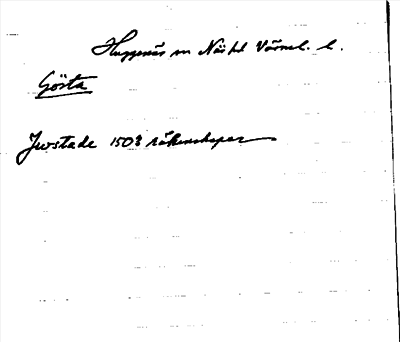 Huggenäs sn Näs hd Värml. l.
Gösta
Jwstade 1503 räkenskaper